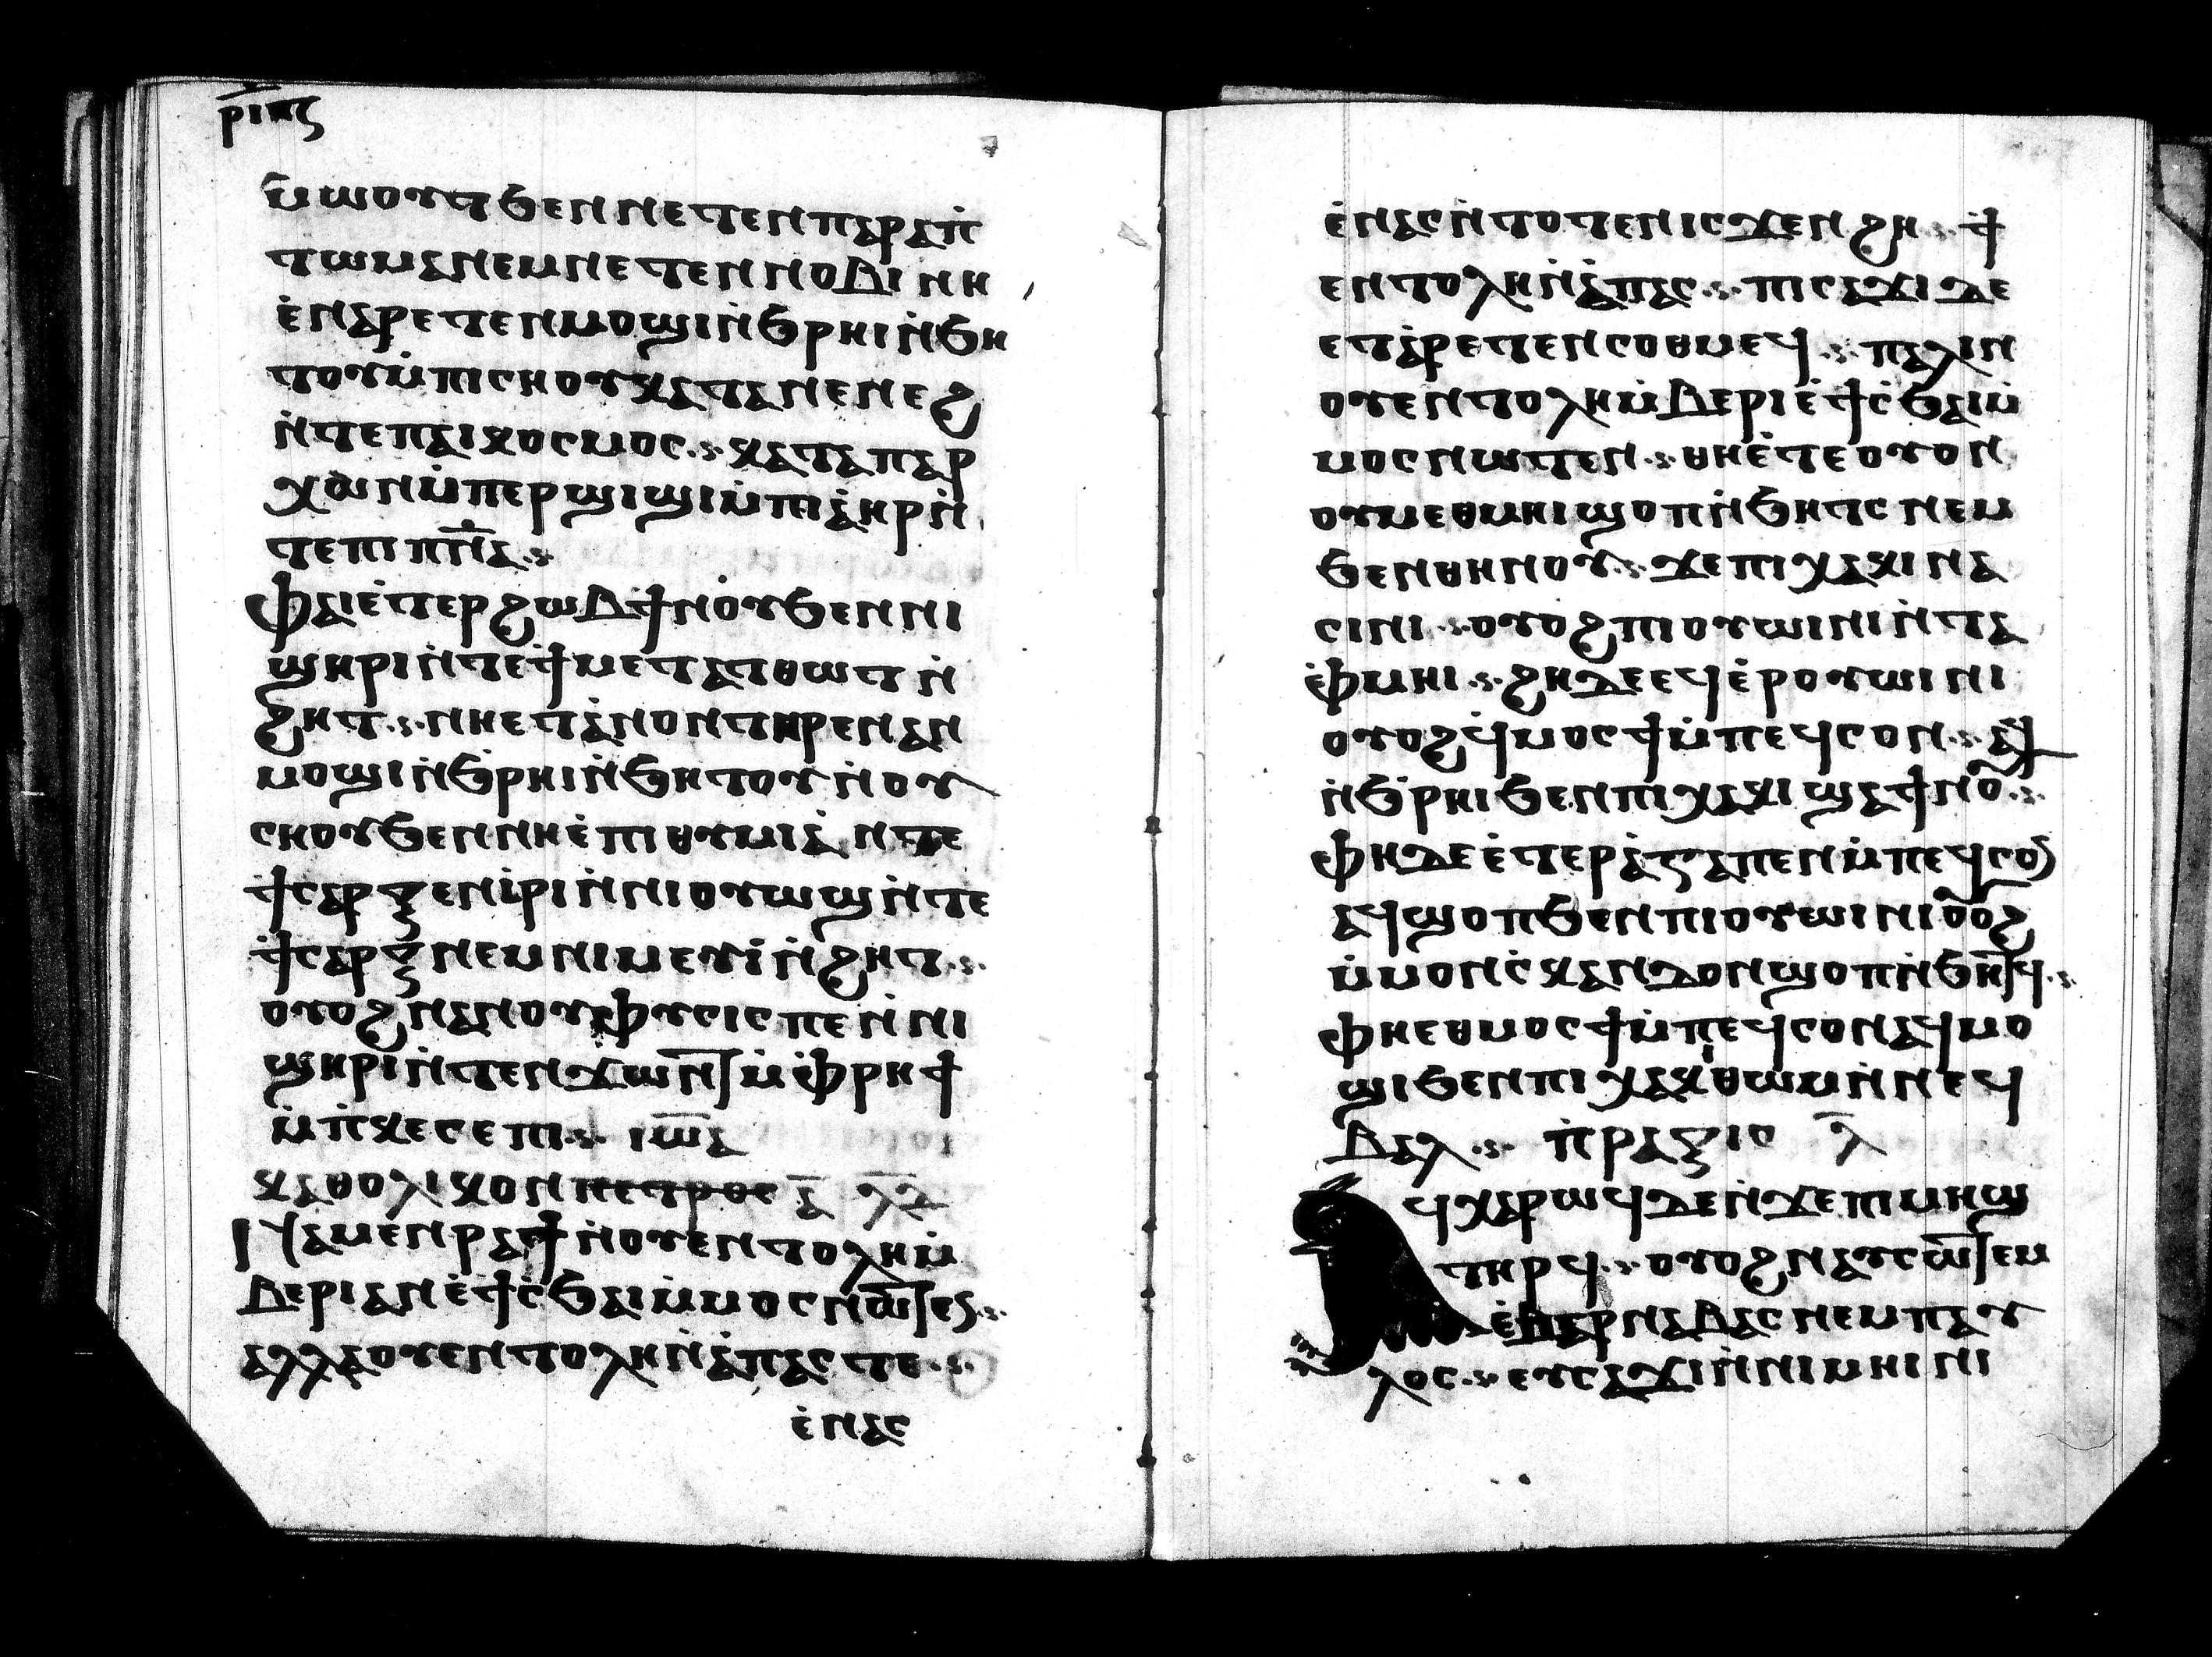 ⲣⲓⲕⲋ
ⲙ̀ⲱⲟⲩⲧ ϧⲉⲛ ⲛⲉⲧⲉⲛⲡⲁⲣⲁⲡ̀
ⲧⲱⲙⲁ ⲛⲉⲙ ⲛⲉⲧⲉⲛⲛⲟⲃⲓ ⲛⲏ
ⲉ̀ⲛⲁⲣⲉⲧⲉⲛⲙⲟϣⲓ ⲛ̀ϧⲣⲏⲓ ⲛ̀ϧⲏ
ⲧⲟⲩ ⲙ̀ⲡⲓⲥⲏⲟⲩ ⲕⲁⲧⲁ ⲛⲉⲛⲉϩ
ⲛ̀ⲧⲉ ⲡⲁⲓⲕⲟⲥⲙⲟⲥ ⲕⲁⲧⲁ ⲡⲁⲣ
ⲭⲱⲛ ⲙ̀ⲡⲉⲣϣⲓϣⲓ ⲙ̀ⲡⲓⲁ̀ⲏⲣ ⲛ̀
ⲧⲉ ⲡⲓⲡ̅ⲛ̅ⲁ̅
ⲫⲁⲓ ⲉ̀ⲧⲉⲣϩⲱⲃ ϯⲛⲟ̀ⲩ ϧⲉⲛ ⲛⲓ
ϣⲏⲣⲓ ⲛ̀ⲧⲉ ϯⲙⲉⲧⲁⲧⲑⲱⲧ ⲛ̀
ϩⲏⲧ ⲛⲏⲉⲧⲁ̀ⲛⲟⲛ ⲧⲏⲣⲉⲛ ⲁⲛ
ⲙⲟϣⲓ ⲛ̀ϧ̀ⲣⲏⲓ ⲛ̀ϧⲏⲧⲟⲩ ⲛ̀ⲟⲩ
ⲥⲏⲟⲩ ϧⲉⲛ ⲛⲏⲉ̀ⲡⲓⲑⲩⲙⲓⲁ̀ ⲛ̀ⲧⲉ
ϯⲥⲁⲣⲝ ⲉⲛⲓ̀ⲣⲓ ⲛ̀ⲛⲓⲟⲩⲱϣ ⲛ̀ⲧⲉ
ϯⲥⲁⲣⲝ ⲛⲉⲙ ⲛⲓⲙⲉⲩⲓ̀ ⲛ̀ϩⲏⲧ
ⲟⲩⲟϩ ⲛⲁⲛⲟⲩⲫⲩⲥⲓⲥ ⲡⲉ ⲛ̀ⲛⲓ
ϣⲏⲣⲓ ⲛ̀ⲧⲉ ⲛϫⲱⲛⲧ̅ ⲙ̀ⲫ̀ⲣⲏϯ
ⲙ̀ⲡ̀ⲕⲉⲥⲉⲡⲓ ⲓⲱ̅ⲁ̅
ⲕⲁⲑⲟⲗⲓⲕⲟⲛ ⲡⲉⲧⲣⲟⲥ ⲁ̅ ⲗ̅ⲇ̅
ⲛⲁⲙⲉⲛⲣⲁϯ ⲛ̀ⲟⲩⲉⲛⲧⲟⲗⲏ ⲙ̀
ⲃⲉⲣⲓ ⲁⲛ ⲉ̀ϯⲥ̀ϧⲁⲓ ⲙ̀ⲙⲟⲥ ⲛⲱⲧ̅ⲉⲛ
ⲁⲗⲗⲁ ⲟⲩⲉⲛⲧⲟⲗⲏ ⲛ̀ⲁ̀ⲡⲁⲥ ⲧⲉ
ⲉ̀ⲛⲁⲥ
ⲉ̀ⲛⲁⲥ ⲛ̀ⲧⲟⲧⲉⲛ ⲓⲥϫⲉⲛ ϩⲏ ϯ
ⲉⲛⲧⲟⲗⲏ ⲛ̀ⲁ̀ⲡⲁⲥ ⲡⲓⲥⲁϫⲓ ⲇⲉ
ⲉⲧⲁ̀ⲣⲉⲧⲉⲛⲥⲟⲑⲙⲉϥ ⲡⲁⲗⲓⲛ
ⲟⲩⲉⲛⲧⲟⲗⲏ ⲙ̀ⲃⲉⲣⲓ ⲉ̀ϯⲥ̀ϧⲁⲓ ⲙ̀
ⲙⲟⲥ ⲛⲱⲧⲉⲛ ⲑⲏⲉ̀ⲧⲉ ⲟⲩⲟⲛ
ⲟⲩⲙⲉⲑⲙⲏⲓ ϣⲟⲡ ⲛ̀ϧⲏⲧⲥ ⲛⲉⲙ
ϧⲉⲛ ⲑⲏⲛⲟⲩ ϫⲉ ⲡⲓⲭⲁⲕⲓ ⲛⲁ
ⲥⲓⲛⲓ ⲟⲩⲟϩ ⲡⲓⲟⲩⲱⲓⲛⲓ ⲛ̀ⲧⲁ
ⲫ̀ⲙⲏⲓ ϩⲏⲇⲉ ⲉϥⲉ̀ⲣⲟⲩⲱⲓⲛⲓ
ⲟⲩⲟϩ ϥ̀ⲙⲟⲥϯ ⲙ̀ⲡⲉϥⲥⲟⲛ ⲁϥ
ⲛ̀ϧ̀ⲣⲏⲓ ϧⲉⲛ ⲡⲓⲭⲁⲕⲓ ϣⲁ ϯⲛⲟⲩ
ⲫⲏ ⲇⲉ ⲉ̀ⲧⲉⲣⲁ̀ⲅⲁⲡⲉⲛ ⲙ̀ⲡⲉϥⲥⲟⲛ
ⲁϥϣⲟⲡ ϧⲉⲛ ⲡⲓⲟⲩⲱⲓⲛⲓ ⲟⲩⲟϩ
ⲙ̀ⲙⲟⲛ ⲥ̀ⲕⲁⲛⲇⲟⲛ ϣⲟⲡ ⲛ̀ϧⲏⲧ̅ϥ
ⲫⲏⲉⲑⲙⲟⲥϯ ⲙ̀ⲡⲉϥⲥⲟⲛ ⲁϥⲙⲟ
ϣⲓ ϧⲉⲛ ⲡⲓⲭⲁⲕⲓ ⲑⲱⲙ ⲛ̀ⲛⲉϥ
ⲃⲁⲗ ⲡ̀ⲣⲁⲝⲓⲥ ⲗ̅
ϥⲭⲁⲣⲱϥ ⲇⲉ ⲛ̀ϫⲉ ⲡⲓⲙⲏϣ
ⲧⲏⲣϥ ⲟⲩⲟϩ ⲛⲁⲩⲥⲱⲧ̅ⲉⲙ
ⲉ̀ⲃⲁⲣⲛⲁⲃⲁⲥ ⲛⲉⲙ ⲡⲁⲩ
ⲗⲟⲥ ⲉⲩⲥⲁϫⲓ ⲛ̀ⲛⲓⲙⲏⲓⲛⲓ